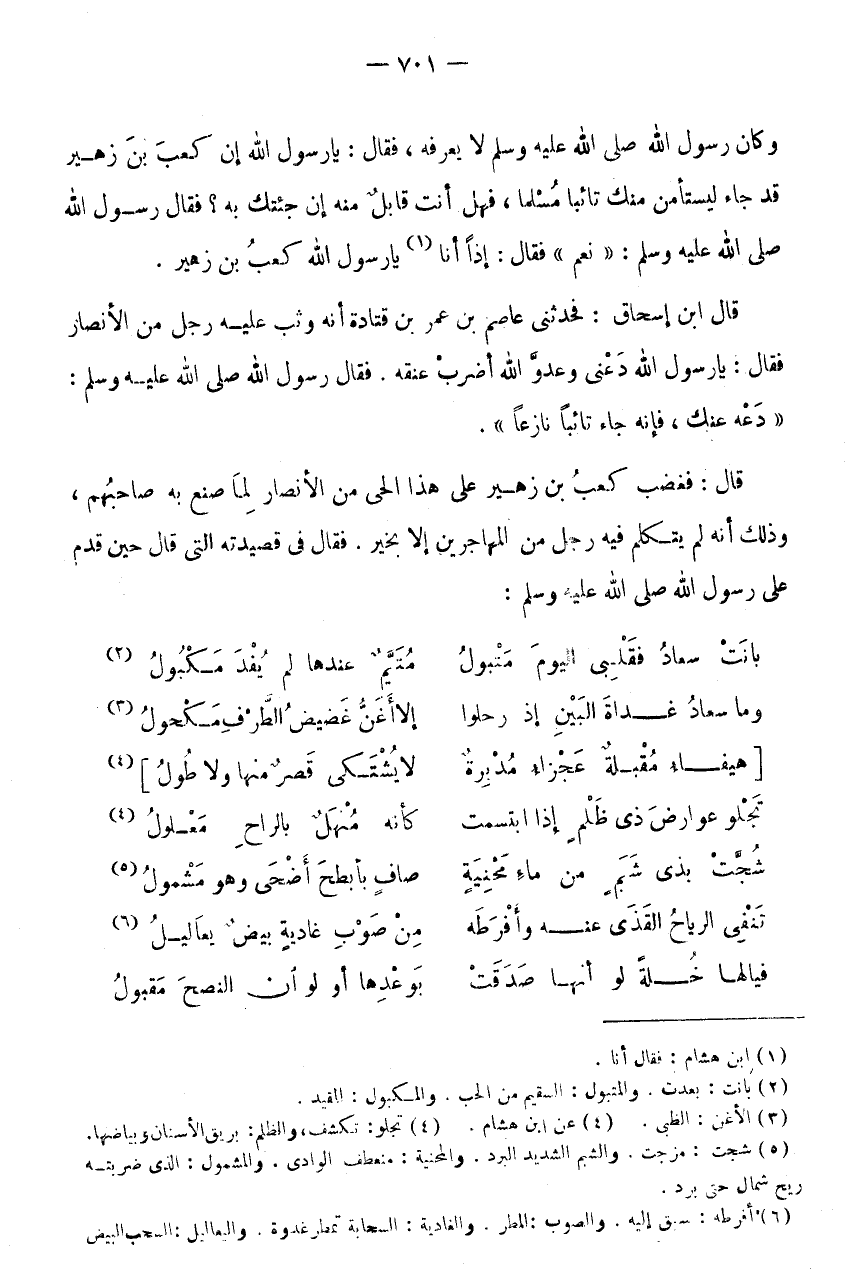 — ٧٠١ —
وكان رسول الله صلى الله عليه وسلم لا يعرفه ، فقال : يارسول الله إن كعبَ بنَ زهـير
قد جاء ليستأمن منك تائبا مُسْلما ، فهل أنت قابلٌ منه إن جئتك به ؟ فقال رسـول الله
صلى الله عليه وسلم : « نعم » فقال : إذاً أنا (١) يارسول الله كعبُ بن زهير .
قال ابن إسحاق : فحدثنى عاصم بن عمر بن قتادة أنه وثب عليـه رجل من الأنصار
فقال : يارسول الله دَعْنى وعدوَّ الله أضربْ عنقه . فقال رسول الله صلى الله عليـه وسلم :
« دَعْه عنك ، فإنه جاء تائباً نازعاً » .
قال : فغضب كعبُ بن زهـير على هذا الحى من الأنصار لِمَا صنع به صاحبُهم ،
وذلك أنه لم يتـكلم فيه رجل من المهاجرين إلا بخير . فقال فى قصيدته التى قال حين قدم
على رسول الله صلى الله عليه وسلم :
بانَتْ سعادُ فقَلْبِى اليومَ مَتْبولُ مُتَيَّمٌ عندها لم يُفْدَ مَـكْبُولُ (٢)
وما سعادُ غـداةَ البَيْنِ إذ رحلوا إلا أَغَنُّ غَضيضُ الطَّرْفِ مَـكْحولُ (٣)
[ هيفـاء مُقْبـلةٌ عَجْزاء مُدْبِرةٌ لا يُشْتَـكى قَصرٌ منها ولا طُولُ ] (٤)
تَجْلو عوارضَ ذى ظَلْمٍ إذا ابتسمت كأنه مُنْهَلٌ بالراحِ مَعْـلولُ (٤)
شُجَّتْ بذى شَبَمٍ من ماءِ مَحْنِيَةٍ صافٍ بأبطحَ أَضْحَى وهو مَشْمولُ (٥)
تَنْفِى الرياحُ القَذَى عنـه وأَفْرَطَه مِنْ صَوْبِ غاديةٍ بيضٌ يعاَليـلُ (٦)
فيالهـا خُـلةً لو أنهـا صَدَقَتْ بَوعْدِها أو لو أن النصحَ مَقبولُ
(١) ابن هشام : فقال أنا .
(٢) بانت : بعدت . والمتبول : السقيم من الحب . والمـكبول : المقيد .
(٣) الأغن : الظبى . (٤) عن ابن هشام . (٤) تجلو: تـكشف، والظلم: بريق الأسنان وبياضها.
(٥) شجت : مزجت . والشبم الشديد البرد . والمحنية : منعطف الوادى . والمشمول : الذى ضربتـه
ريح شمال حتى برد .
(٦) أفرطه : سبق إليه . والصوب : المطر . والغادية : السحابة تمطر غدوة . واليعاليل : السحب البيض